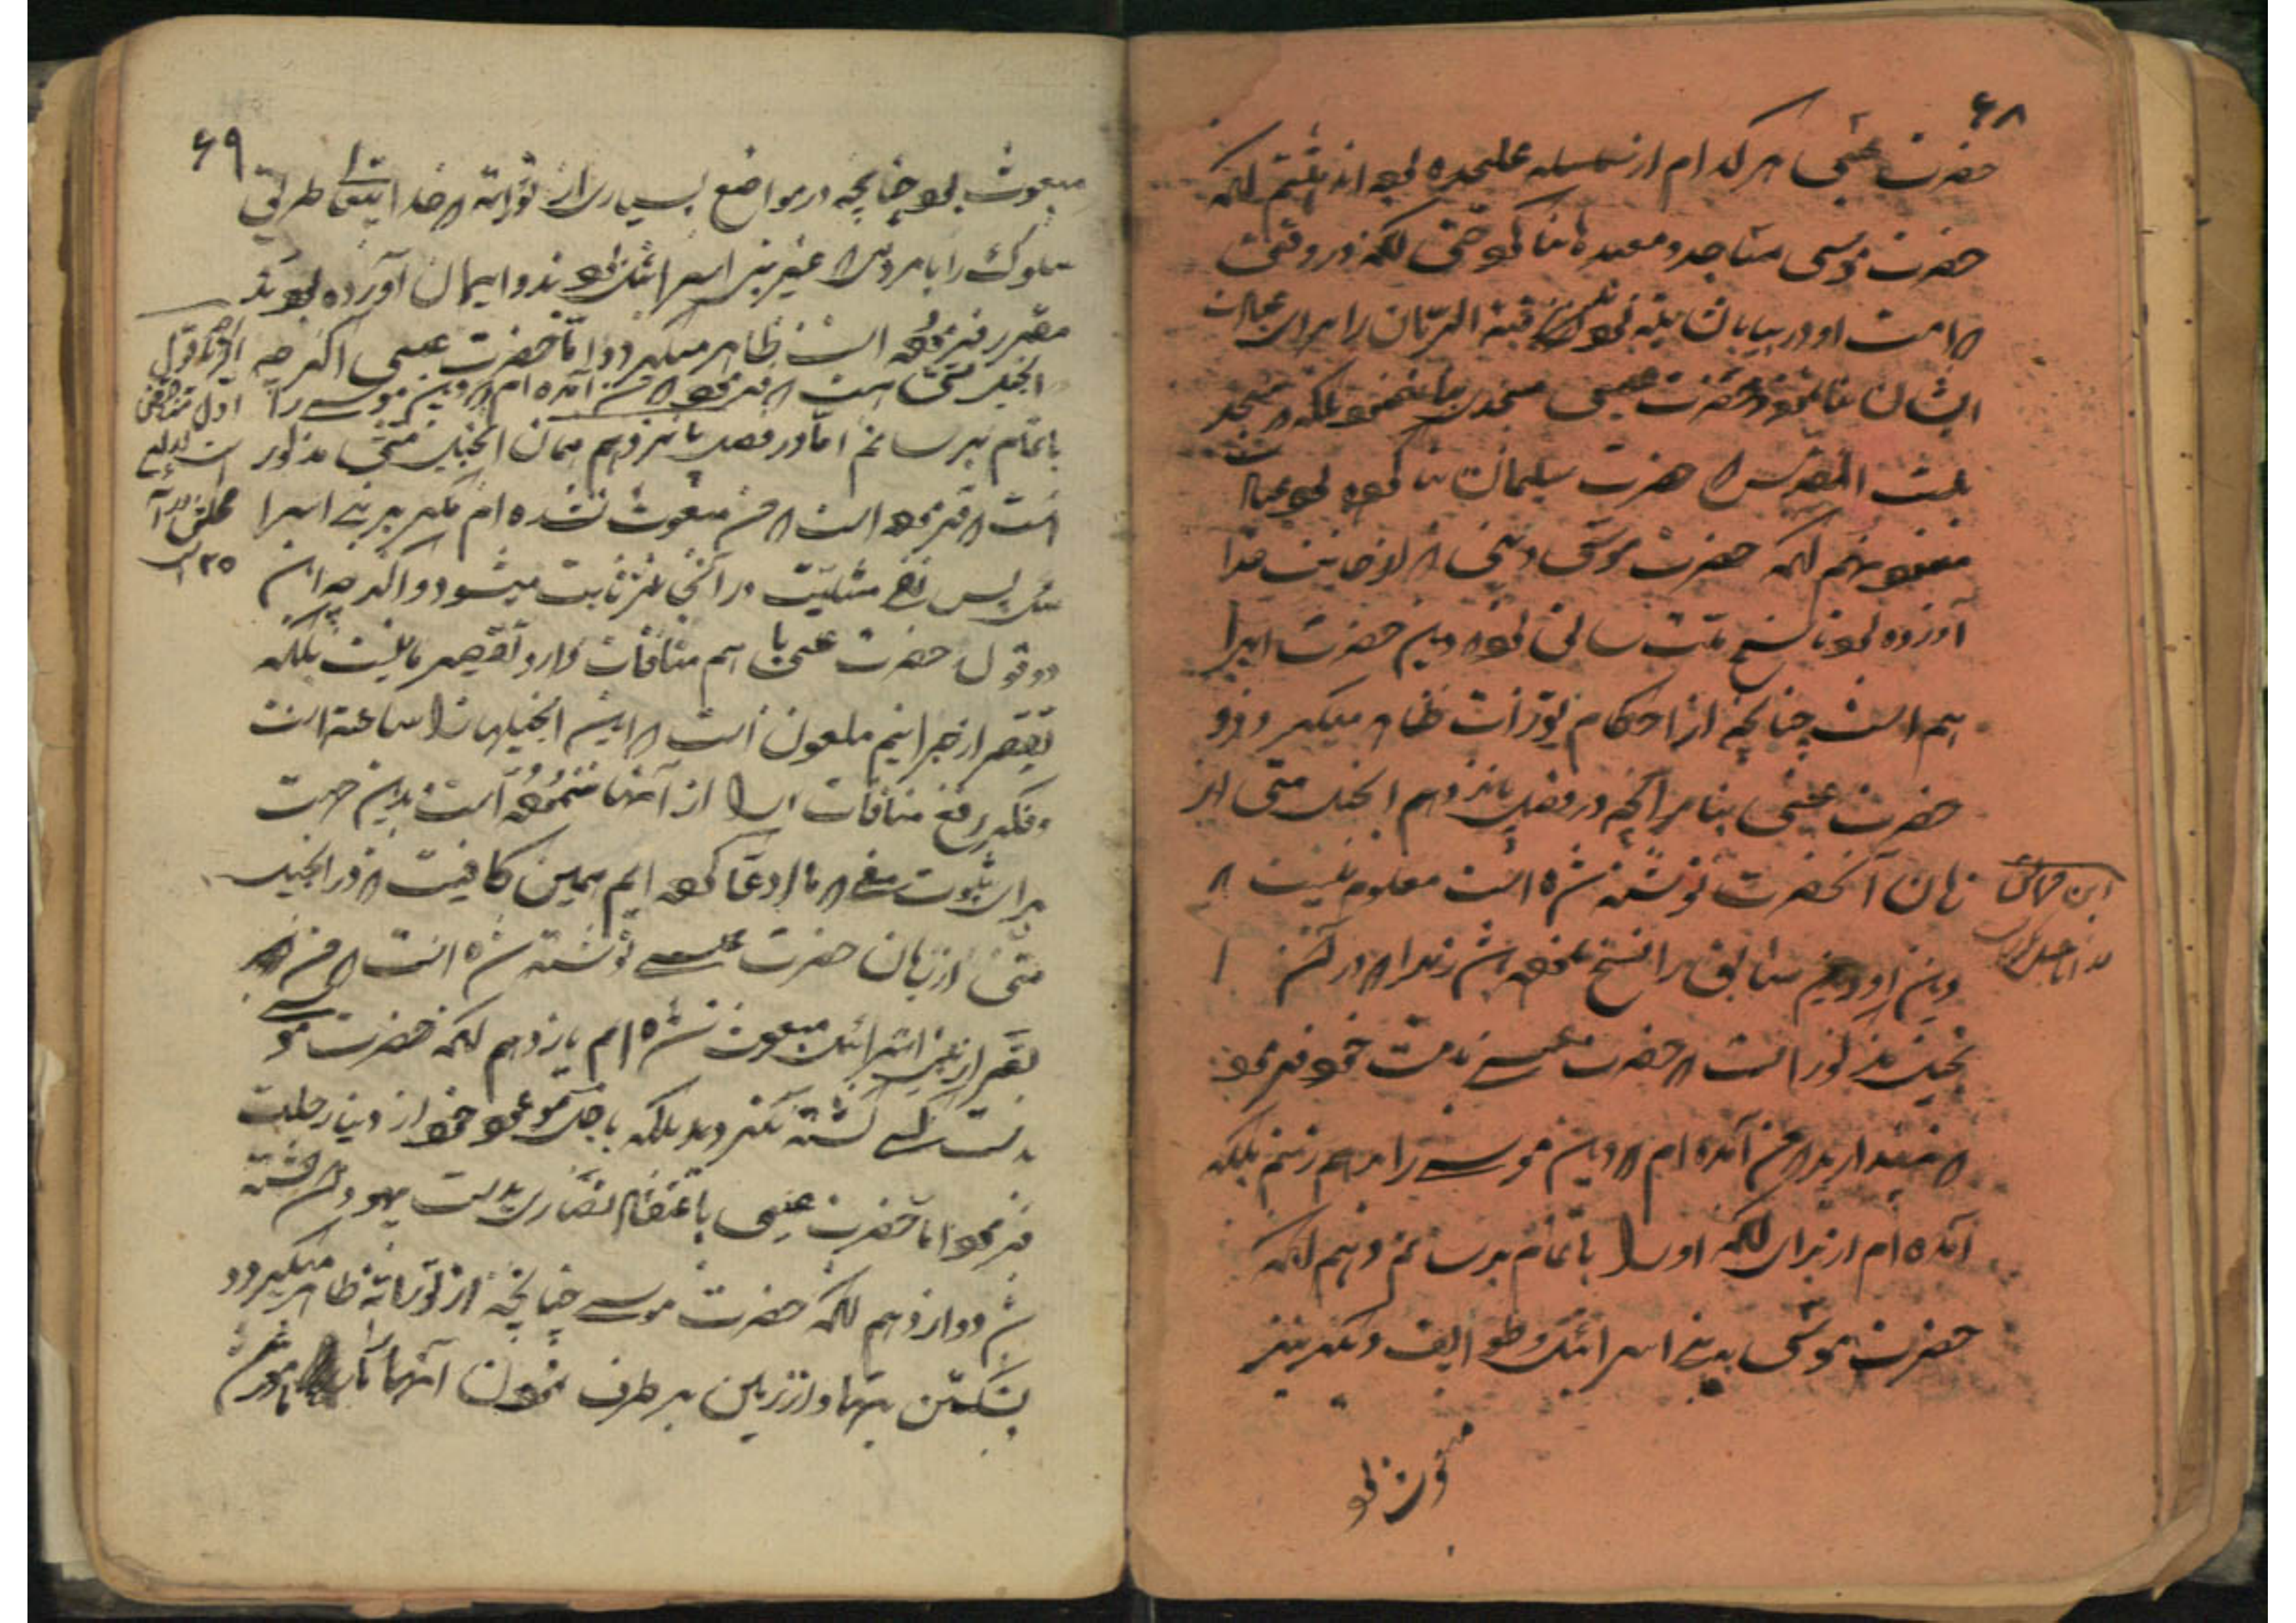 ۶۸
حضرت عیسی هر کدام از سلسله علیحده بوده اند هشتم آنکه
حضرت موسی مساجد و معبدها بنا کرد حتی آنکه در وقتی
که امت او در بیابان تیه بودند قبة الزمان را برای عبادت
ایشان بنا نمود و حضرت عیسی مسجدی بنا ننمود بلکه در مسجد
بیت المقدس که حضرت سلیمان بنا کرده بود عبادت
مینمود نهم آنکه حضرت موسی دینی که از جانب خدا
آورده بود ناسخ ملت سابق بود که دین حضرت ابرا
هیم است چنانچه از احکام تورات ظاهر میگردد و
حضرت عیسی بنا بر آنچه در فصل پانزدهم انجیل متی از
زبان آنحضرت نوشته شده است معلوم نیست که
دین او دین سابق را نسخ نموده باشد زیرا که در آن ا
نجیل مذکور است که حضرت عیسی بامت خود فرمود
که مپندارید که من آمده ام که دین موسی را برهم زنم بلکه
آمده ام از برای آنکه او را باتمام برسانم دهم آنکه
حضرت موسی به بنی اسرائیل و طوایف دیگر نیز
مبعوث بود
۶۹
مبعوث بود چنانچه در مواضع بسیاری از توراته که خدا ایتعا طریق
سلوک را با مردمی که غیر بنی اسرائیل بودند و ایمان آورده بودند
مقرر فرموده است ظاهر میگردد و اما حضرت عیسی اگر چه
انجیل متی است که فرمود که من آمده ام که دین موسی را
باتمام برسانم اما در فصل پانزدهم همان انجیل متی مذکور
است که فرموده است که من مبعوث نشده ام مگر بر بنی اسرا
ئیل پس نفی مثلیت در آنجا نیز ثابت میشود و اگر چه این
دو قول حضرت عیسی با هم منافات دارد تقصیر ما نیست بلکه
تقصیر از جرانیم ملعون است که این انجیلها را ساخته است
و فکر رفع منافات را از آنها ننموده است بدین جهت
برای ثبوت مدعی که ما ادعا کرده ایم همین کافیست که در انجیل
متی از زبان حضرت عیسی نوشته شده است که من
بغیر از بنی اسرائیل مبعوث نشده ام یازدهم آنکه حضرت موسی
بدست کسی کشته نگردید بلکه باجل موعود خود از دنیا رحلت
فرمود اما حضرت عیسی باعتقاد نصاری بدست یهودان کشته
شد دوازدهم آنکه حضرت موسی چنانچه از توراته ظاهر میگردد
بشکستن بتها و از زمین بر طرف نمودن آنها مأمور شد
اگر چه قول
اول